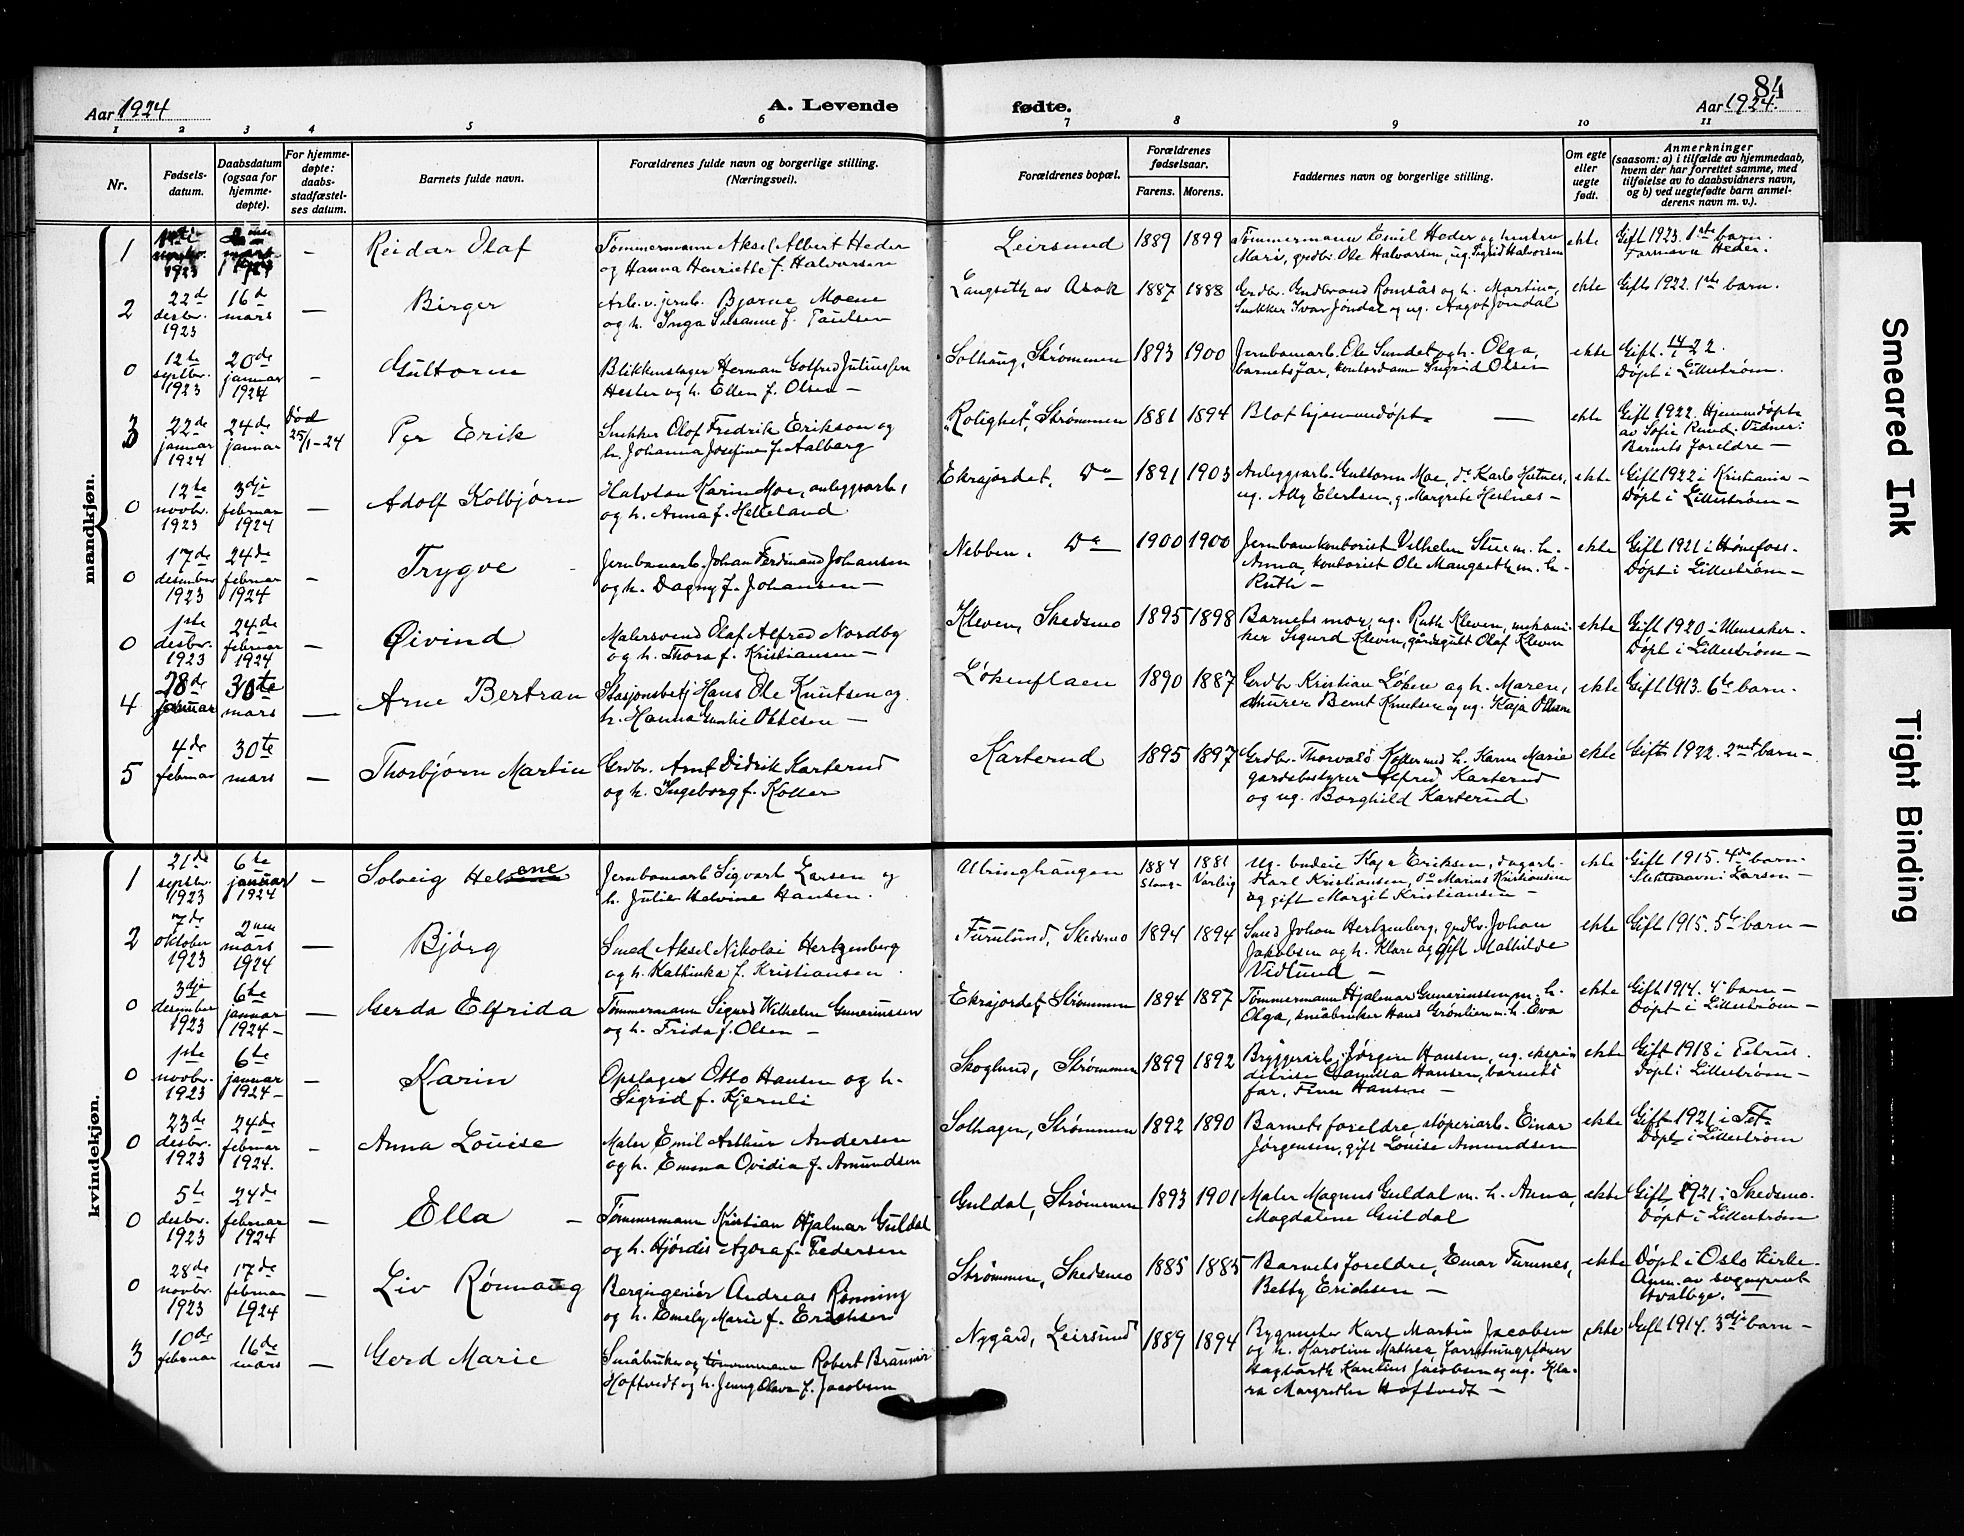 84
Aar 1924
A. Levende
fødte.
Aar 1924.
1 2 3 4 5 6 7 8 9 10 11
Nr.
Fødsels-
datum.
Daabsdatum
(ogsaa for
hjemme-
døpte).
For hjemme-
døpte:
daabs-
stadfæstel-
ses datum.
Barnets fulde navn.
Forældrenes fulde navn og borgerlige stilling.
(Næringsvei).
Forældrenes bopæl.
Forældrenes
fødselsaar.
Farens. Morens.
Faddernes navn og borgerlige stilling.
Om egte
eller
uegte
født.
Anmerkninger
(saasom: a) i tilfælde av hjemmedaab,
hvem der har forrettet samme, med
tilføielse av to daabsvidners navn,
og b) ved uegtefødte barn anmel-
derens navn m. v.).
mandkjøn.
1
1923
1924
—
Reidar Olaf
Tømmermann Aksel Albert Heder
og Hanna Henriette f. Halvorsen
Leirsund
1889 1899
Tømmermann Emil Heder og hustru
Mari, grdbr. Ole Halvorsen, ug. Sigrid Halvorsen
ekte
Gift 1923. 1ste barn.
Farnavn Heder.
2
22de
desbr.
1923
16de
mars
—
Birger
Arb. v. jernb. Bjarne Moene
og h. Inga Susanne f. Paulsen
Langseth av Asak
1887 1888
Grdbr. Gudbrand Romsås og h. Martina,
Snekker Ivar Jøndal og ug. Aagot Jøndal
ekte
Gift 1922. 1ste barn.
0
12te
septbr.
1923
20de
januar
1924
—
Guttorm
Blikkenslager Herman Gotfred Juliussen
Hester og h. Ellen f. Olsen —
Solhaug, Strømmen
1893 1900
Jernbanearb. Ole Sundet og h. Olga,
barnets far, kontordame Ingrid Olsen
ekte
Gift 14/1 22.
Døpt i Lillestrøm.
3
22de
januar
1924
24de
januar
død
25/1-24
Per Erik
Snekker Olof Fredrik Erikson og
h. Johanna Josefine f. Aalberg
"Rolighet", Strømmen
1881 1894
Blot hjemmedøpt —
ekte
Gift 1922. Hjemmedøpt
av Sofie Rund. Vidner:
Barnets foreldre —
0
12te
novbr.
1923
3dje
februar
1924
—
Adolf Kolbjørn
Halvdan Karin Moe, anleggsarb.,
og h. Anna f. Helleland
Ekrajordet, Do
1891 1903
Anleggsarb. Guttorm Moe, do Karlo Hetnes,
ug. Ally Elertsen, g. Margrete Hetnes —
ekte
Gift 1922 i Kristiania —
Døpt i Lillestrøm —
0
17de
desember
1923
24de
februar
1924
—
Trygve
Jernbanearb. Johan Ferdinand Johansen
og h. Dagny f. Johansen —
Nebben, Do
1900 1900
Jernbanekontorist Vilhelm Stue m. h.
Anna, kontorist Ole Mangseth m. h.
Ruth —
ekte
Gift 1921 i Hønefoss.
Døpt i Lillestrøm —
0
1ste
desbr.
1923
24de
februar
1924
—
Øivind
Malersvend Olaf Alfred Nordby
og h. Thora f. Kristiansen —
Kleven, Skedsmo
1895 1898
Barnets mor, ug. Ruth Kleven, mekani-
ker Sigurd Kleven, gårdsgutt Olaf Kleven
ekte
Gift 1920 i Ullensaker.
Døpt i Lillestrøm —
4
28de
januar
30te
mars
—
Arne Bertran
Stasjonsbetj Hans Ole Knutsen og
h. Hanna Emilie Ottesen —
Løkenflaen
1890 1887
Grdbr Kristian Løken og h. Maren,
murer Bernt Knutsen og ug. Kaja Ottesen
ekte
Gift 1913. 6te barn.
5
4de
februar
30te
mars
—
Thorbjørn Martin
Grdbr. Arnt Didrik Karterud
og h. Ingeborg f. Kolter
Karterud
1895 1897
Grdbr. Thorvald Karterud h. Karen Marie
gardsbestyrer Alfred Karterud
og ug. Borghild Karterud
ekte
Gift 1922. 2net barn —
kvindekjøn.
1
21de
septbr.
1923
6te
januar
1924
—
Solveig Helene
Jernbanearb Sigvart Larsen og
h. Julie Helvine Hansen.
Ulvinghaugen
1884 1881
Stang- Varteig
Ug. budeie Kaja Eriksen, dagarb.
Karl Kristiansen, do Marius Kristiansen
og gift Margit Kristiansen —
ekte
Gift 1915. 4de barn.
Slektsnavn: Larsen —
2
7de
oktober
1923
2nen
mars
1924
—
Bjørg
Smed Aksel Nikolai Hertzenberg
og h. Kathinka f. Kristiansen.
Furulund, Skedsmo
1894 1894
Smed Johan Hertzenberg, grdbr. Johan
Jakobsen og h. Klara og gift Mathilde
Vidlund —
ekte
Gift 1915. 5te barn —
0
3dje
desember
1923
6te
januar
1924 —
—
Gerda Elfrida
Tømmermann Sigurd Wilhelm Gunerinssen
og h. Frida f. Olsen —
Ekrajordet, Strømmen
1894 1897
Tømmermann Hjalmar Gunerinssen m. h.
Olga, småbruker Hans Grønlien m. h. Eva
ekte
Gift 1914. 4de barn —
Døpt i Lillestrøm —
0
1ste
novbr.
1923
6te
januar
1924 —
—
Karin
Opslager Otto Hansen og h.
Sigrid f. Kjernli
Skoglund, Strømmen
1899 1892
Bryggeriarb. Jørgen Hansen, ug. ekspe-
ditrise Camilla Hansen, barnets
far, Finn Hansen —
ekte
Gift 1918 i Fetrus.
Døpt i Lillestrøm —
0
23de
desbr.
1923
24de
februar
1924.
—
Anna Louise
Maler Emil Arthur Andersen
og h. Emma Ovidia f. Amundsen
Solhagen, Strømmen
1892 1890
Barnets foreldre, støperiarb. Einar
Jørgensen, gift Louise Amundsen
ekte
Gift 1921 i Fet-
Døpt i Lillestrøm
0
5te
desbr.
1923
24de
februar
1924
—
Ella —
Tømmermann Kristian Hjalmar Guldal
og h. Hjørdis Azora f. Pedersen
Guldal, Strømmen
1893 1901
Maler Magnus Guldal m. h. Anna,
Magdalene Guldal
ekte
Gift 1921 i Skedsmo.
Døpt i Lillestrøm
0
28de
novbr.
1923
17de
februar
1924
—
Liv Rønnaug
Bergingeniør Andreas Rønning
og h. Emely Marie f. Erichsen
Strømmen, Skedsmo
1885 1885
Barnets foreldre, Einar Furunes,
Betty Erichsen —
ekte
Døpt i Oslo kirke.
Anm. av sogneprest
Hvalbye. —
3
10de
februar
16de
mars
—
Gerd Marie
Småbruker og tømmermann Robert Brauner
Hoftvedt og h. Jenny Olava f. Jacobsen
Nygård, Leirsund
1889 1894
Bygmester Karl Martin Jacobsen
og h. Karoline Mathea forretningsfører
Hagbarth Karelius Jacobsen og ug. Kla-
ra Margrethe Hoftvedt —
ekte
Gift 1914. 3dje barn —
Smeared Ink
Tight Binding